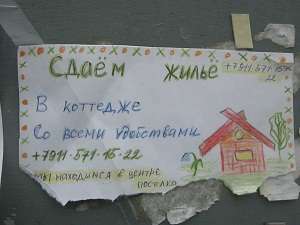 Сдаём жильё
+7911-571-15-22
В коттедже
Со всеми удобствами
+7911-571-15-22
мы находимся в центре
посёлка